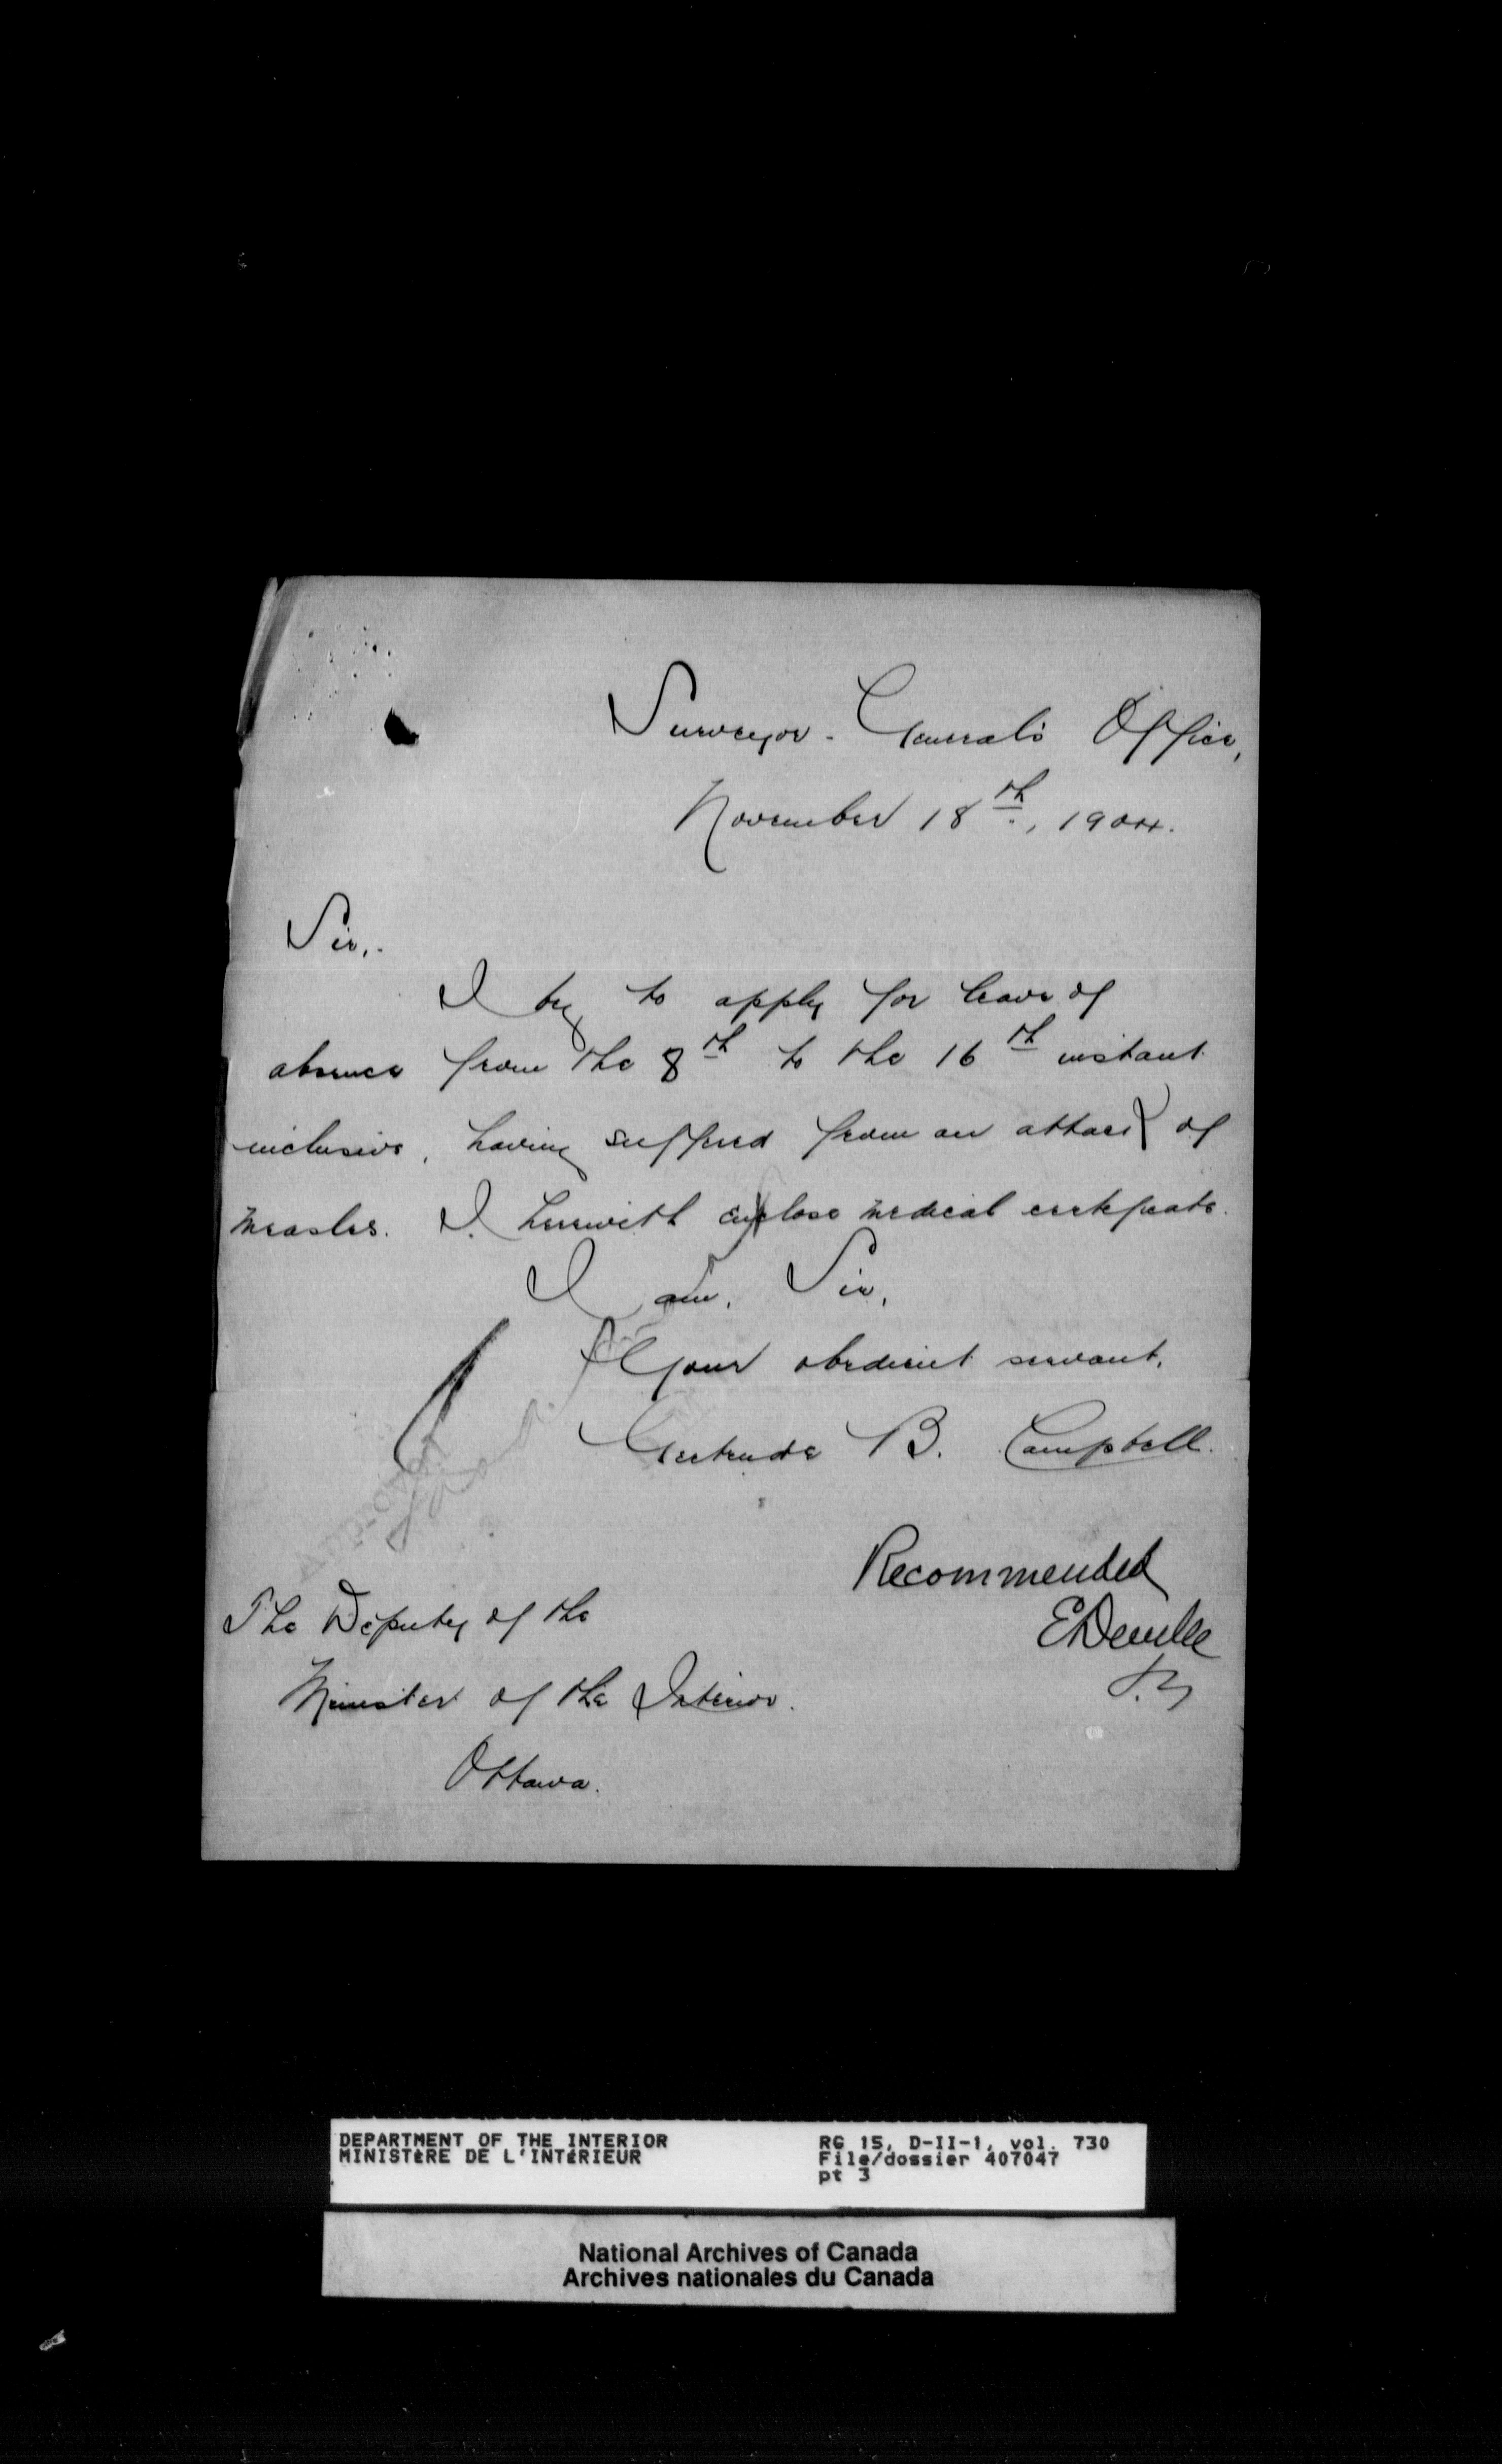 Surveyor-General's Office,
November 18th, 1904.
Sir,
I beg to apply for leave of
absence from the 8th to the 16th instant
inclusive, having suffered from an attack of
measles. I herewith enclose medical certificate.
I am, Sir,
Your obedient servant,
Gertrude B. Campbell.
Approved
Recommended
E Deville
The Deputy of the
Minister of the Interior.
Ottawa.
DEPARTMENT OF THE INTERIOR
MINISTÈRE DE L'INTÉRIEUR
RG 15, D-II-1, vol. 730
File/dossier 407047
pt 3
National Archives of Canada
Archives nationales du Canada